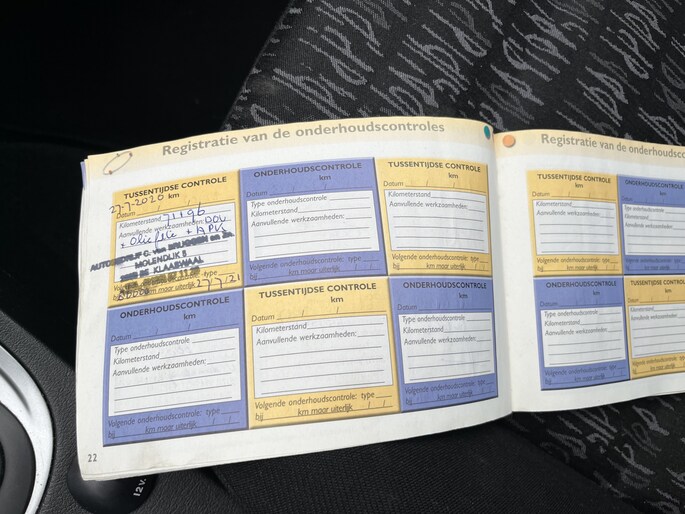 Registratie van de onderhoudscontroles
TUSSENTIJDSE CONTROLE
km
27-7-2020
Datum
Kilometerstand 71196
Aanvullende werkzaamheden: DOV
+ Oliefilte + APK
AUTOBEDRIJF C. van BRUGGEN en Zn.
MOLENDIJK
KLAASWAAL
Volgende onderhoudscontrole: type
bij km maar uiterlijk 27/7/21
ONDERHOUDSCONTROLE
km
Datum / /
Type onderhoudscontrole
Kilometerstand
Aanvullende werkzaamheden:
Volgende onderhoudscontrole: type
bij km maar uiterlijk / /
TUSSENTIJDSE CONTROLE
km
Datum / /
Kilometerstand
Aanvullende werkzaamheden:
Volgende onderhoudscontrole: type
bij km maar uiterlijk / /
ONDERHOUDSCONTROLE
km
Datum / /
Type onderhoudscontrole
Kilometerstand
Aanvullende werkzaamheden:
Volgende onderhoudscontrole: type
bij km maar uiterlijk / /
TUSSENTIJDSE CONTROLE
km
Datum / /
Kilometerstand
Aanvullende werkzaamheden:
Volgende onderhoudscontrole: type
bij km maar uiterlijk / /
ONDERHOUDSCONTROLE
km
Datum / /
Type onderhoudscontrole
Kilometerstand
Aanvullende werkzaamheden:
Volgende onderhoudscontrole: type
bij km maar uiterlijk / /
22
Registratie van de onderhoudsco
TUSSENTIJDSE CONTROLE
km
Datum / /
Kilometerstand
Aanvullende werkzaamheden:
Volgende onderhoudscontrole: type
bij km maar uiterlijk / /
ONDERHOUDSCONTROLE
km
Datum
Type onderhoudscontrole
Kilometerstand
Aanvullende werkzaamheden:
Volgende onderhoudscontrole: type
bij km maar uiterlijk
ONDERHOUDSCONTROLE
km
Datum / /
Type onderhoudscontrole
Kilometerstand
Aanvullende werkzaamheden:
Volgende onderhoudscontrole: type
bij km maar uiterlijk / /
TUSSENTIJDSE CONTR
km
Datum
Kilometerstand
Aanvullende werkzaamheden:
Volgende onderhoudscontrole:
bij km maar uiterlijk
12V.